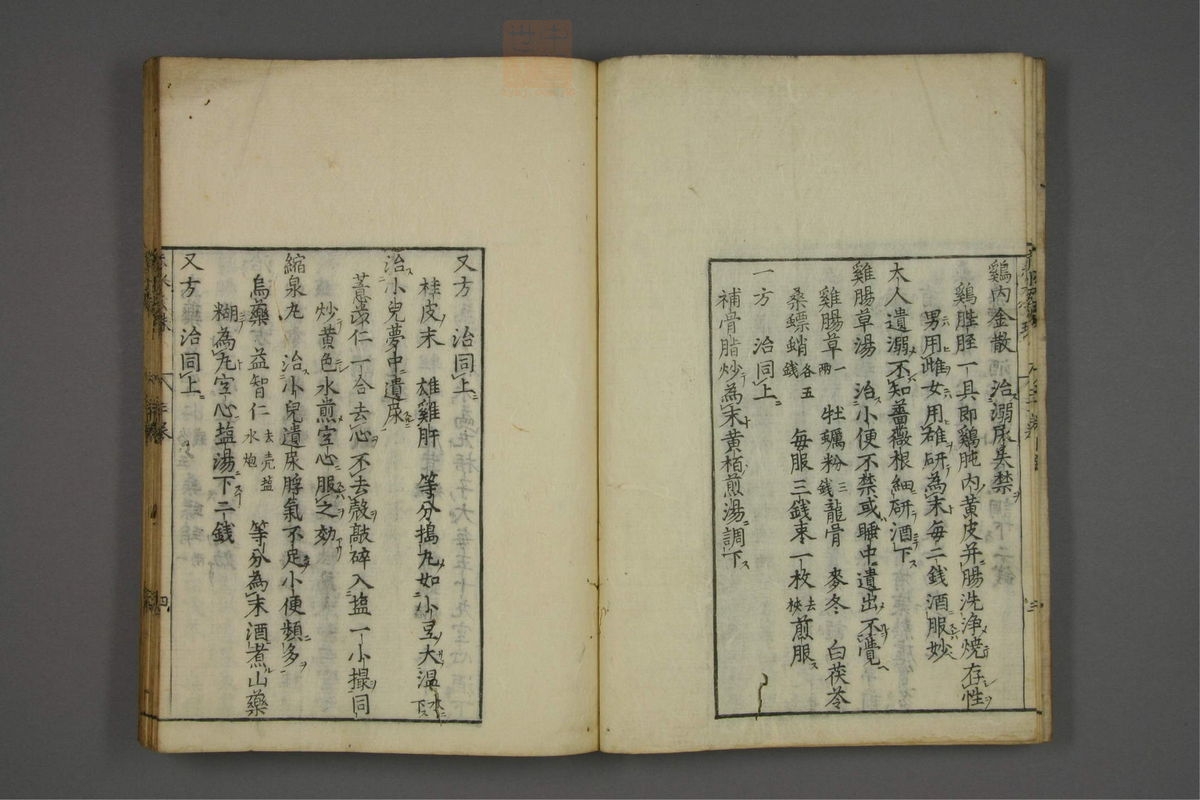 鷄内金散　治溺尿失禁
鷄膍胵一具即鷄肫内黄皮并腸洗浄焼存性
男用雌女用雄研為末毎二銭酒服妙
大人遺溺不知薔薇根細研酒下
雞腸草湯　治小便不禁或睡中遺出不覺
雞腸草一兩　牡蠣粉三銭　龍骨　麥冬　白茯苓
桑螵蛸各五銭　毎服三銭棗一枚去核煎服
一方　治同上
補骨脂炒為末黄栢煎湯調下
又方　治同上
桂皮末　雄雞肝　等分搗丸如小豆大温水下
治小兒夢中遺尿
薏苡仁一合去心不去殻敲碎入塩一小撮同
炒黄色水煎空心服之効
縮泉丸　治小兒遺尿脾氣不足小便頻多
烏藥　益智仁去壳塩水炮　等分為末酒煮山藥
糊為丸空心塩湯下二銭
又方　治同上